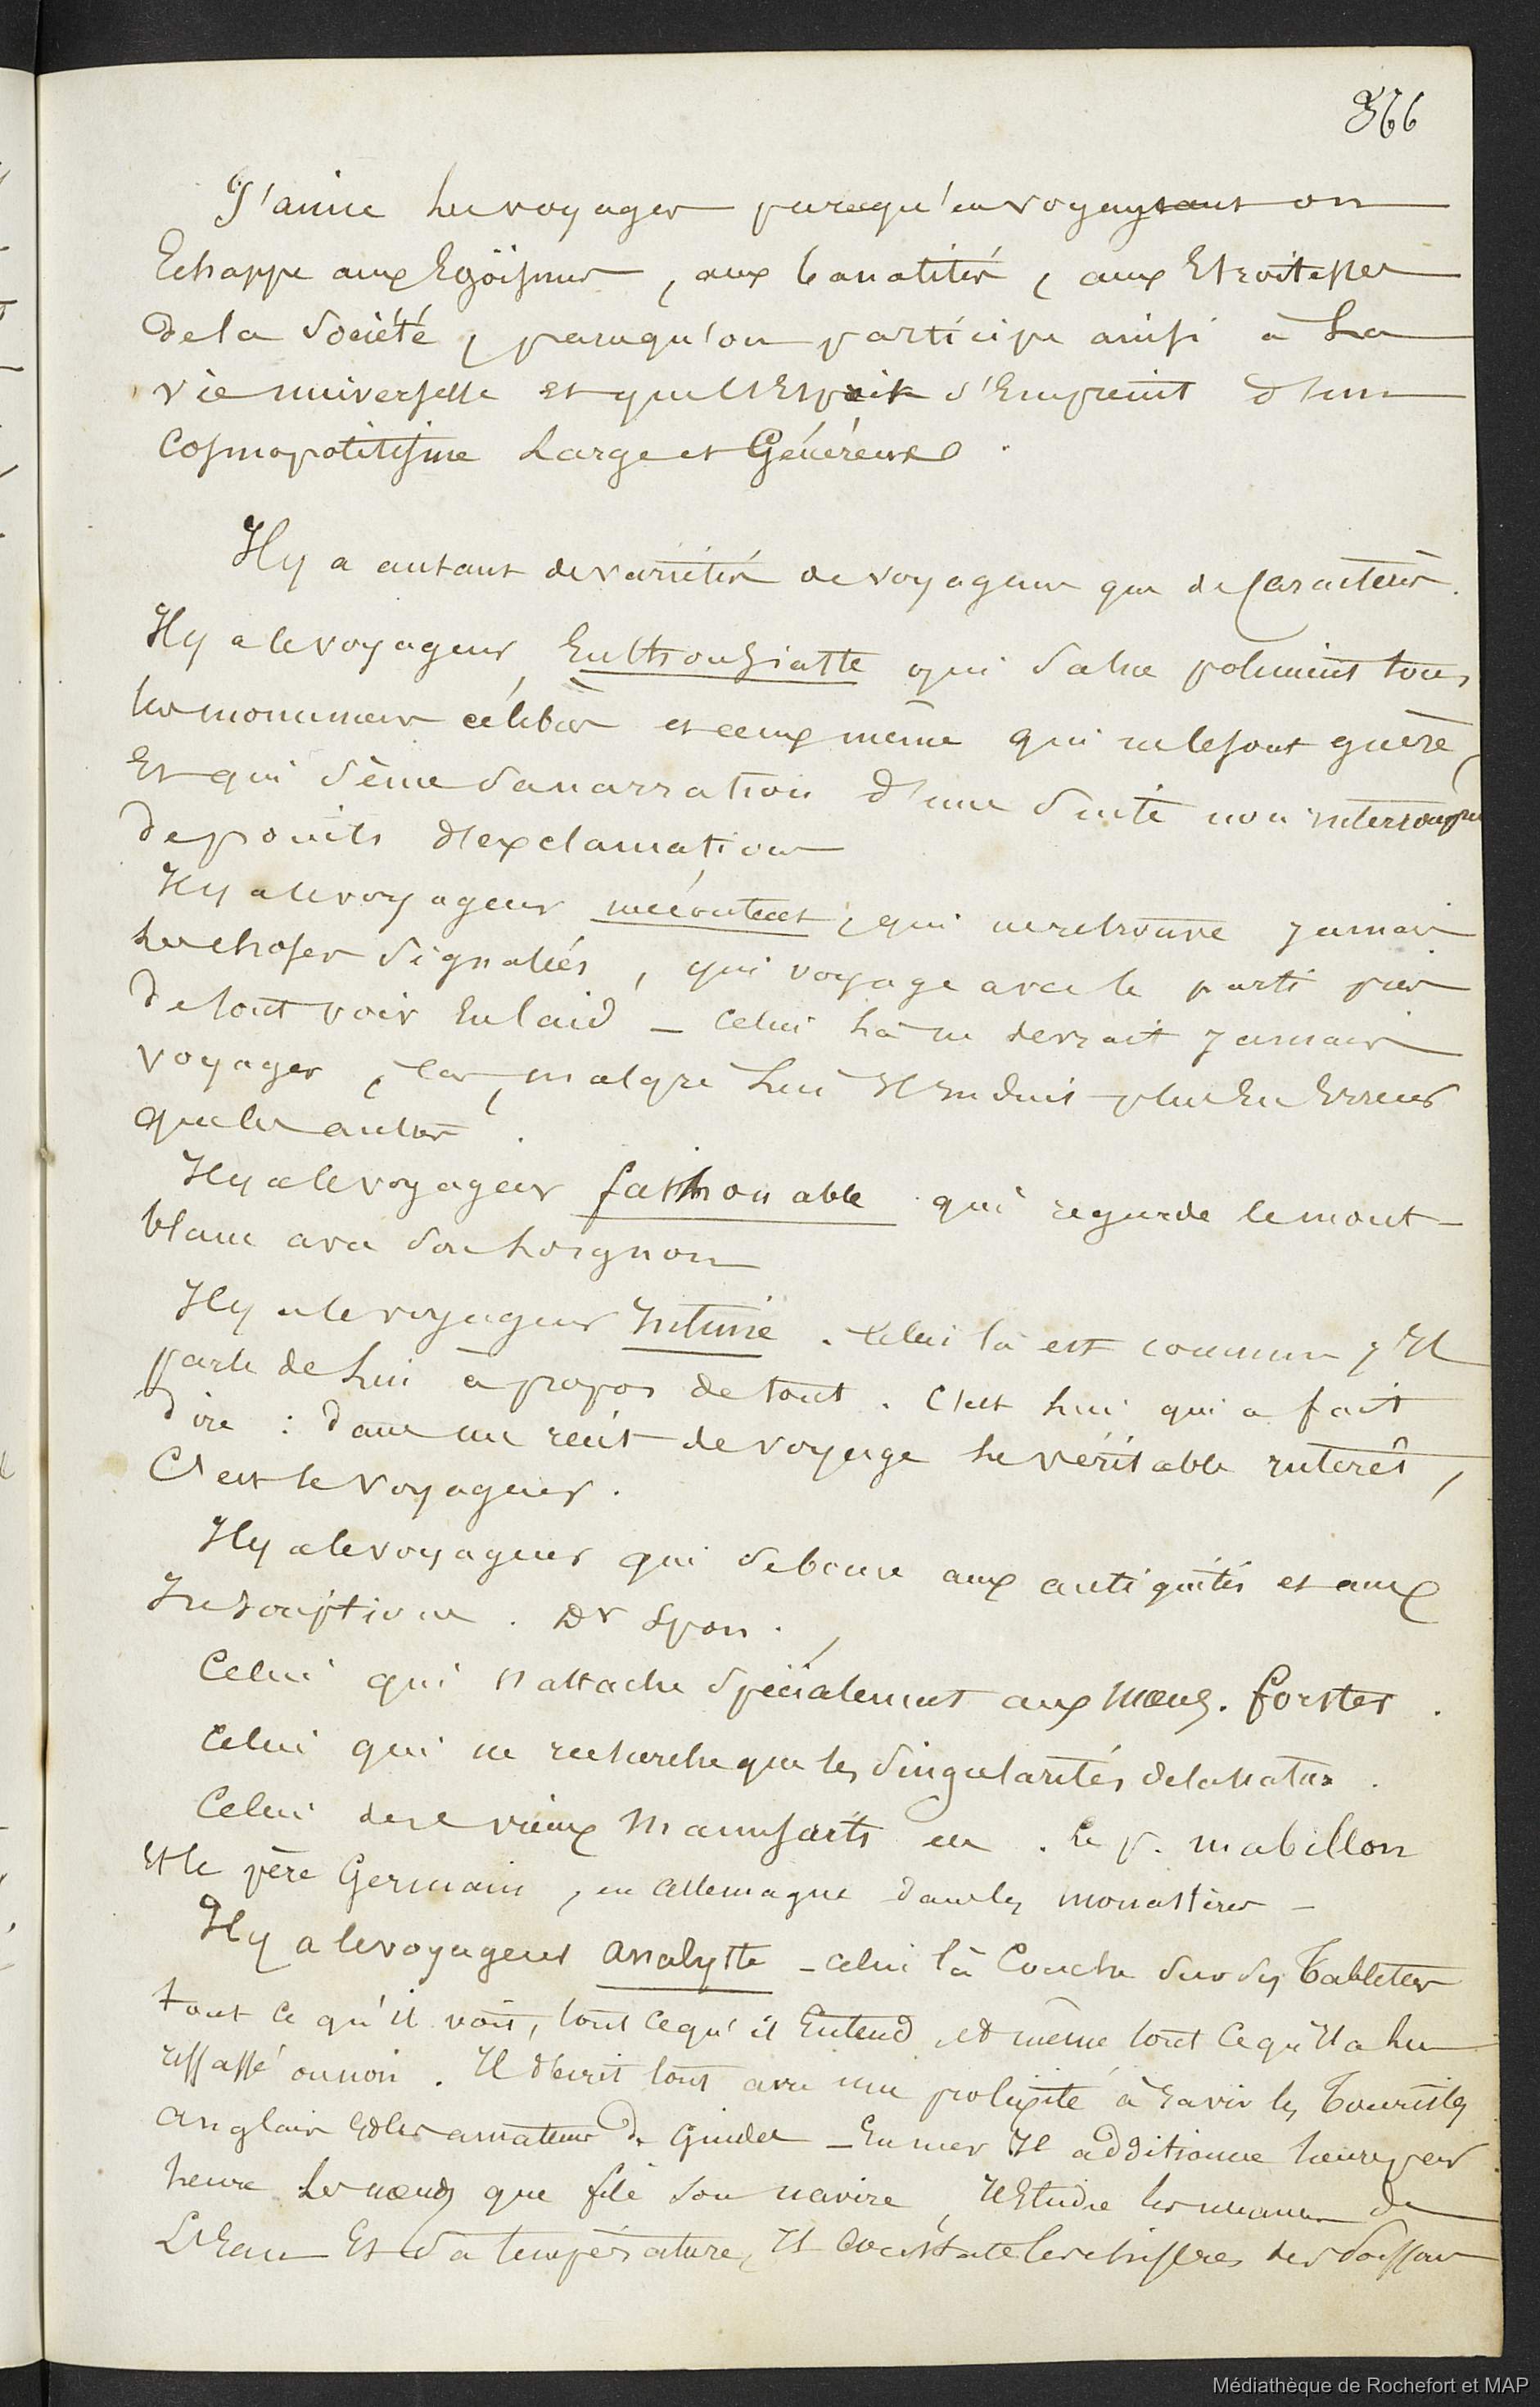 366
J'aime les voyages parcequ'en voyageant on
Echappe aux Egöismes, aux banalités, aux Etroitesses
de la Société, parcequ'on participe ainsi à La
vie universelle et que l'Esprit s'Empreint d'un
Cosmopolitisme Large et Généreux.
Il y a autant de variétés de voyageurs que de Caractères.
Il y a le voyageur Enthousiaste qui salue poliment tous
les monumens célèbres et ceux même qui ne le sont guère,
Et qui sème sa narration d'une suite non interrompue
de points d'exclamations
Il y a le voyageur mécontent, qui ne retrouve jamais
les choses signalées, qui voyage avec le parti pris
de tout voir En laid _ Celui là ne devrait jamais
voyager, Car, malgré Lui Il Induit plus En Erreur
que les autres.
Il y a le voyageur fashionable qui regarde le mont-
blanc avec son lorgnon
Il y a le voyageur Intime. Celui là est commun, Il
parle de Lui à propos de tout. C'est Lui qui a fait
dire : dans un récit de voyage le véritable intérêt,
C'est le Voyageur.
Il y a le voyageur qui se borne aux antiquités et aux
Inscriptions. Dr Spon.
Celui qui s'attache spécialement aux Mœurs. Forster.
Celui qui ne recherche que les singularités de la Nature.
Celui des vieux Manuscrits . Le p. Mabillon
Et le père Germain, en Allemagne dans les monastères _
Il y a le voyageur analyste _ Celui là Couche sur ses Tablettes
tout ce qu'il voit, tout ce qu'il Entend et même tout ce qu'Il a lu
ressassé ou non. Il décrit tout avec une prolixité à ravir les Touristes
anglais et les amateurs de Guides _ En mer Il additionne heure par
heure les nœuds que file son navire, Il Etudie les nuances de
L'Eau Et sa température, Il constate les chiffres des